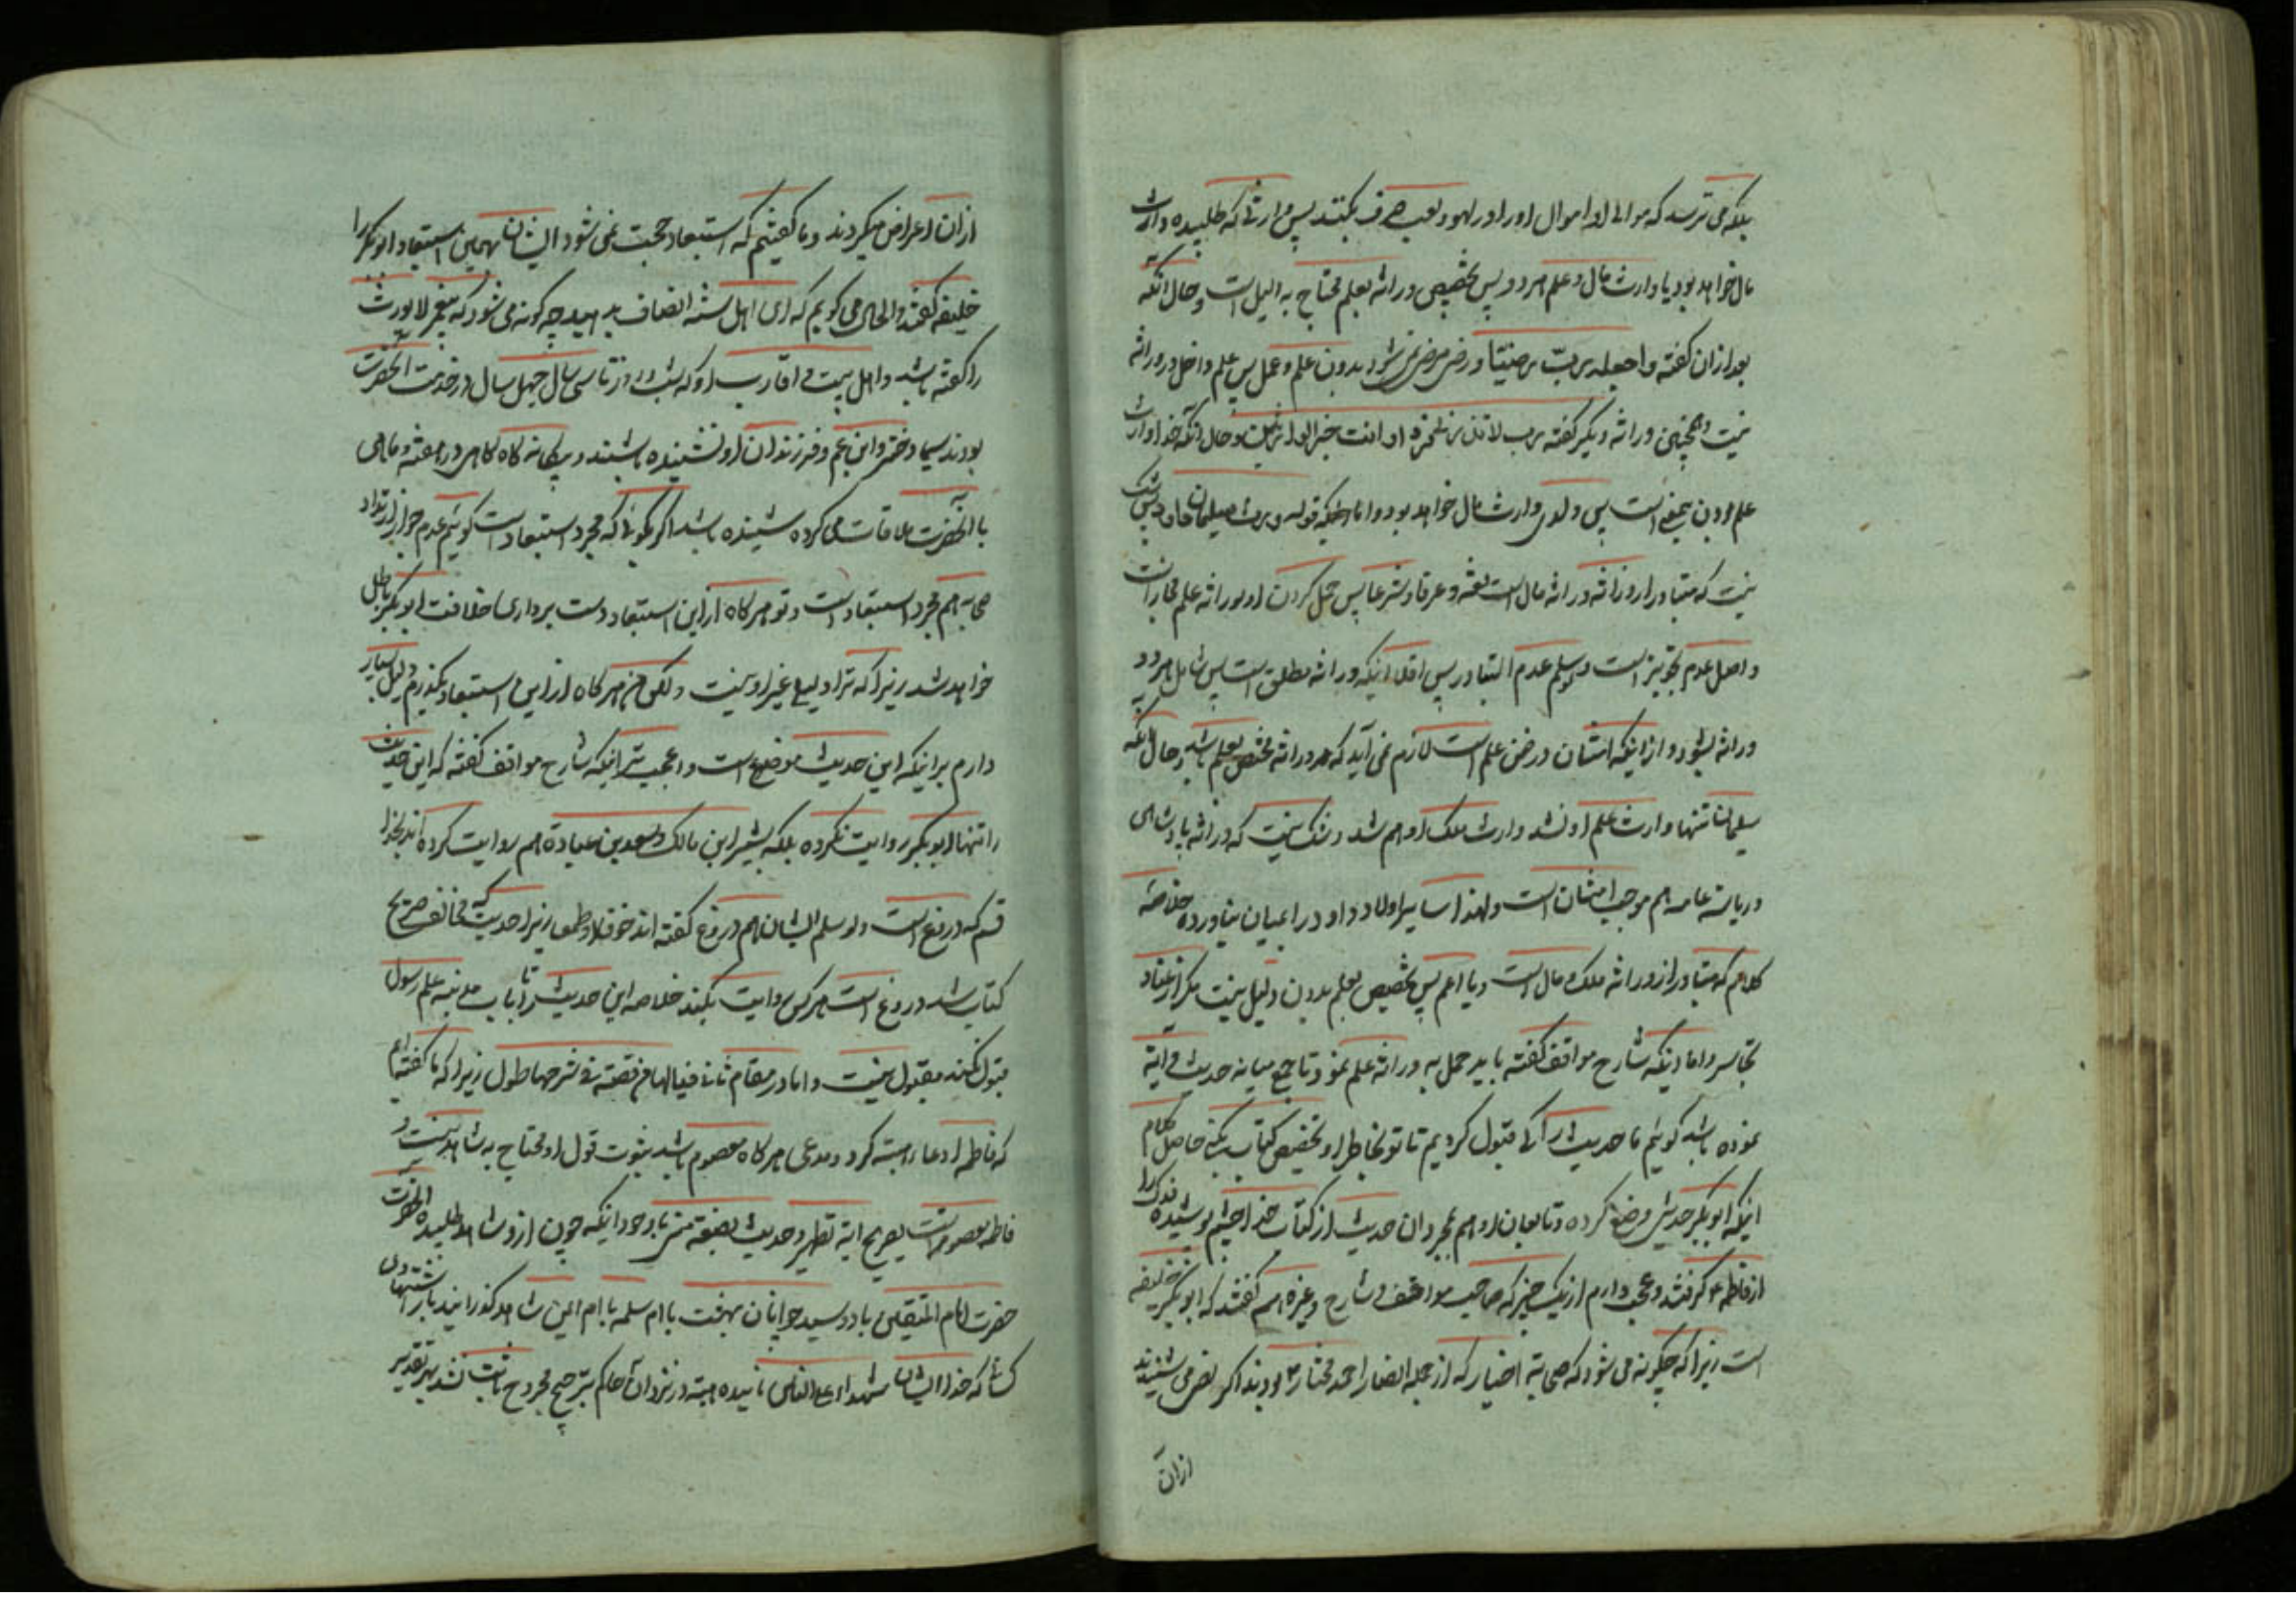 بلکه می ترسد که موالی او اموال او را در لهو و لعب صرف بکنند پس وارثی که طلبیده وارث
مال خواهد بود یا وارث مال و علم هر دو پس تخصیص وراثه بعلم محتاج به دلیل است و حال آنکه
بعد از ان گفته و اجعله رب رضیا و رضی مرضی نمی شود بدون علم و عمل پس علم داخل در وراثه
نیست و همچنین وراثه دیگر گفته رب لا تذرنی فردا و انت خیر الوارثین و حال آنکه خدا وارث
علم بودن بیمعنی است پس ولدی وارث مال خواهد بود و اما اینکه قوله و ورث سلیمان داود پس شک
نیست که متبادر از وراثه وراثه مال است لغة و عرفا و شرعا پس حمل کردن او بوراثه علم مجاز است
و اصل عدم تجویز است و سلم عدم التبادر پس اقلا اینکه وراثه مطلق است پس شامل هر دو
وراثه بشود و از اینکه امتنان در ضمن علم است لازم نمی آید که هر وراثه مختص بعلم باشد و حال آنکه
سلیمان تنها وارث علم او نشد وارث ملک او هم شد و شک نیست که وراثه پادشاهی
و ریاسة عامه هم موجب امتنان است و لهذا سایر اولاد داود در اعیان نیاورده خلاصه
کلام که متبادر از وراثه ملک و مال است و یا اعم پس تخصیص بعلم بدون دلیل نیست مگر از عناد
تجاسر و اما اینکه شارح مواقف گفته باید حمل به وراثه علم نمود تا جمع میانه حدیث و آیة
نموده باشد گوئیم ما حدیث را کی قبول کردیم تا تو بخاطر او تخصیص کتاب بکنی حاصل کلام
اینکه ابو بکر حدیثی وضع کرده و تابعان او هم بمجرد ان حدیث از کتاب خدا چشم پوشیده فدک را
از فاطمه گرفتند و عجب دارم از یک چیز که صاحب مواقف و شارح و غیره هم گفتند که ابو بکر خلیفه
است زیرا که چگونه می شود که صحابه اخیار که از جمله انصار احمد مختار بودند اگر نص می شنیدند
از ان
از ان اعراض میکردند و ما گفتیم که استبعاد حجت نمی شود ایشان بهمین استبعاد ابو بکر را
خلیفه گفتند و الحال می گویم که ای اهل سنه انصاف بدهید چه گونه می شود که پیغمبر لا نورث
را گفته باشد و اهل بیت و اقارب او که شب و روز تا سی سال چهل سال در خدمت آنحضرت
بودند سیما دختر و ابن عم و فرزندان او نشنیده باشند و بیگانه گاه گاهی در هفته و ماهی
با آنحضرت ملاقات می کرده شنیده باشد اگر بگوئی که مجرد استبعاد است گوئیم عدم جواز ارتداد
صحابه هم مجرد استبعاد است و تو هر گاه از این استبعاد دست برداری خلافت ابو بکر باطل
خواهد شد زیرا که ترا دلیلی غیر او نیست و لکن من هر گاه از این استبعاد بگذرم دلیل بسیار
دارم بر اینکه این حدیث موضوع است و اعجب تر اینکه شارح مواقف گفته که این حدیث
را تنها ابو بکر روایت نکرده بلکه بشیر ابن مالک و سعد بن عبادة هم روایت کرده اند بخدا
قسم که دروغ است و لو سلم ایشان هم دروغ گفته اند خوفا و طمعا زیرا حدیثی که مخالف صریح
کتاب شد دروغ است هر کس روایت بکند خلاصه این حدیث را تا باب مدینه علم رسول
قبول نکند مقبول نیست و اما در مقام ثانی فیا لها من قصة فی شرحها طول زیرا که ما گفته ایم
که فاطمه ادعاء هبته کرد و مدعی هر گاه معصوم باشد ثبوت قول او محتاج به شاهد نیست و
فاطمه معصومه است بصریح آیة تطهیر و حدیث بضعة منی با وجود اینکه چون از و شاهد طلبیده آنحضرت
حضرت امام المتقین با دو سید جوانان بهشت با ام سلمه یا ام ایمن شاهد گذرانید بار شهادت
کسانی که خدا ایشان شهداء علی الناس نامیده هبته در نزد ان حاکم بترجیح مرجوح ثابت نشد بهر تقدیر